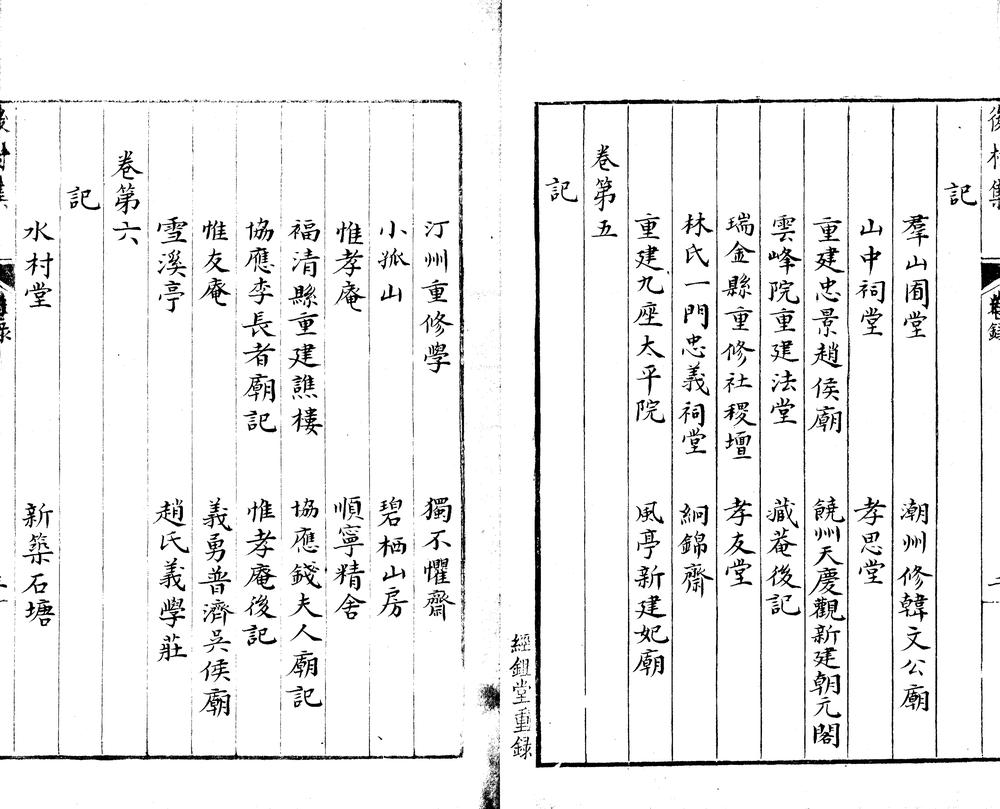 後村集
目錄
記
羣山囿堂 潮州修韓文公廟
山中祠堂 孝思堂
重建忠景趙侯廟 饒州天慶觀新建朝元閣
雲峰院重建法堂 藏菴後記
瑞金縣重修社稷壇 孝友堂
林氏一門忠義祠堂 絅錦齋
重建九座太平院 風亭新建妃廟
卷第五
記
經鉏堂重錄
汀州重修學 獨不懼齋
小孤山 碧栖山房
惟孝庵 順寧精舍
福清縣重建譙樓 協應錢夫人廟記
協應李長者廟記 惟孝庵後記
惟友庵 義勇普濟吳侯廟
雪溪亭 趙氏義學莊
卷第六
記
水村堂 新築石塘